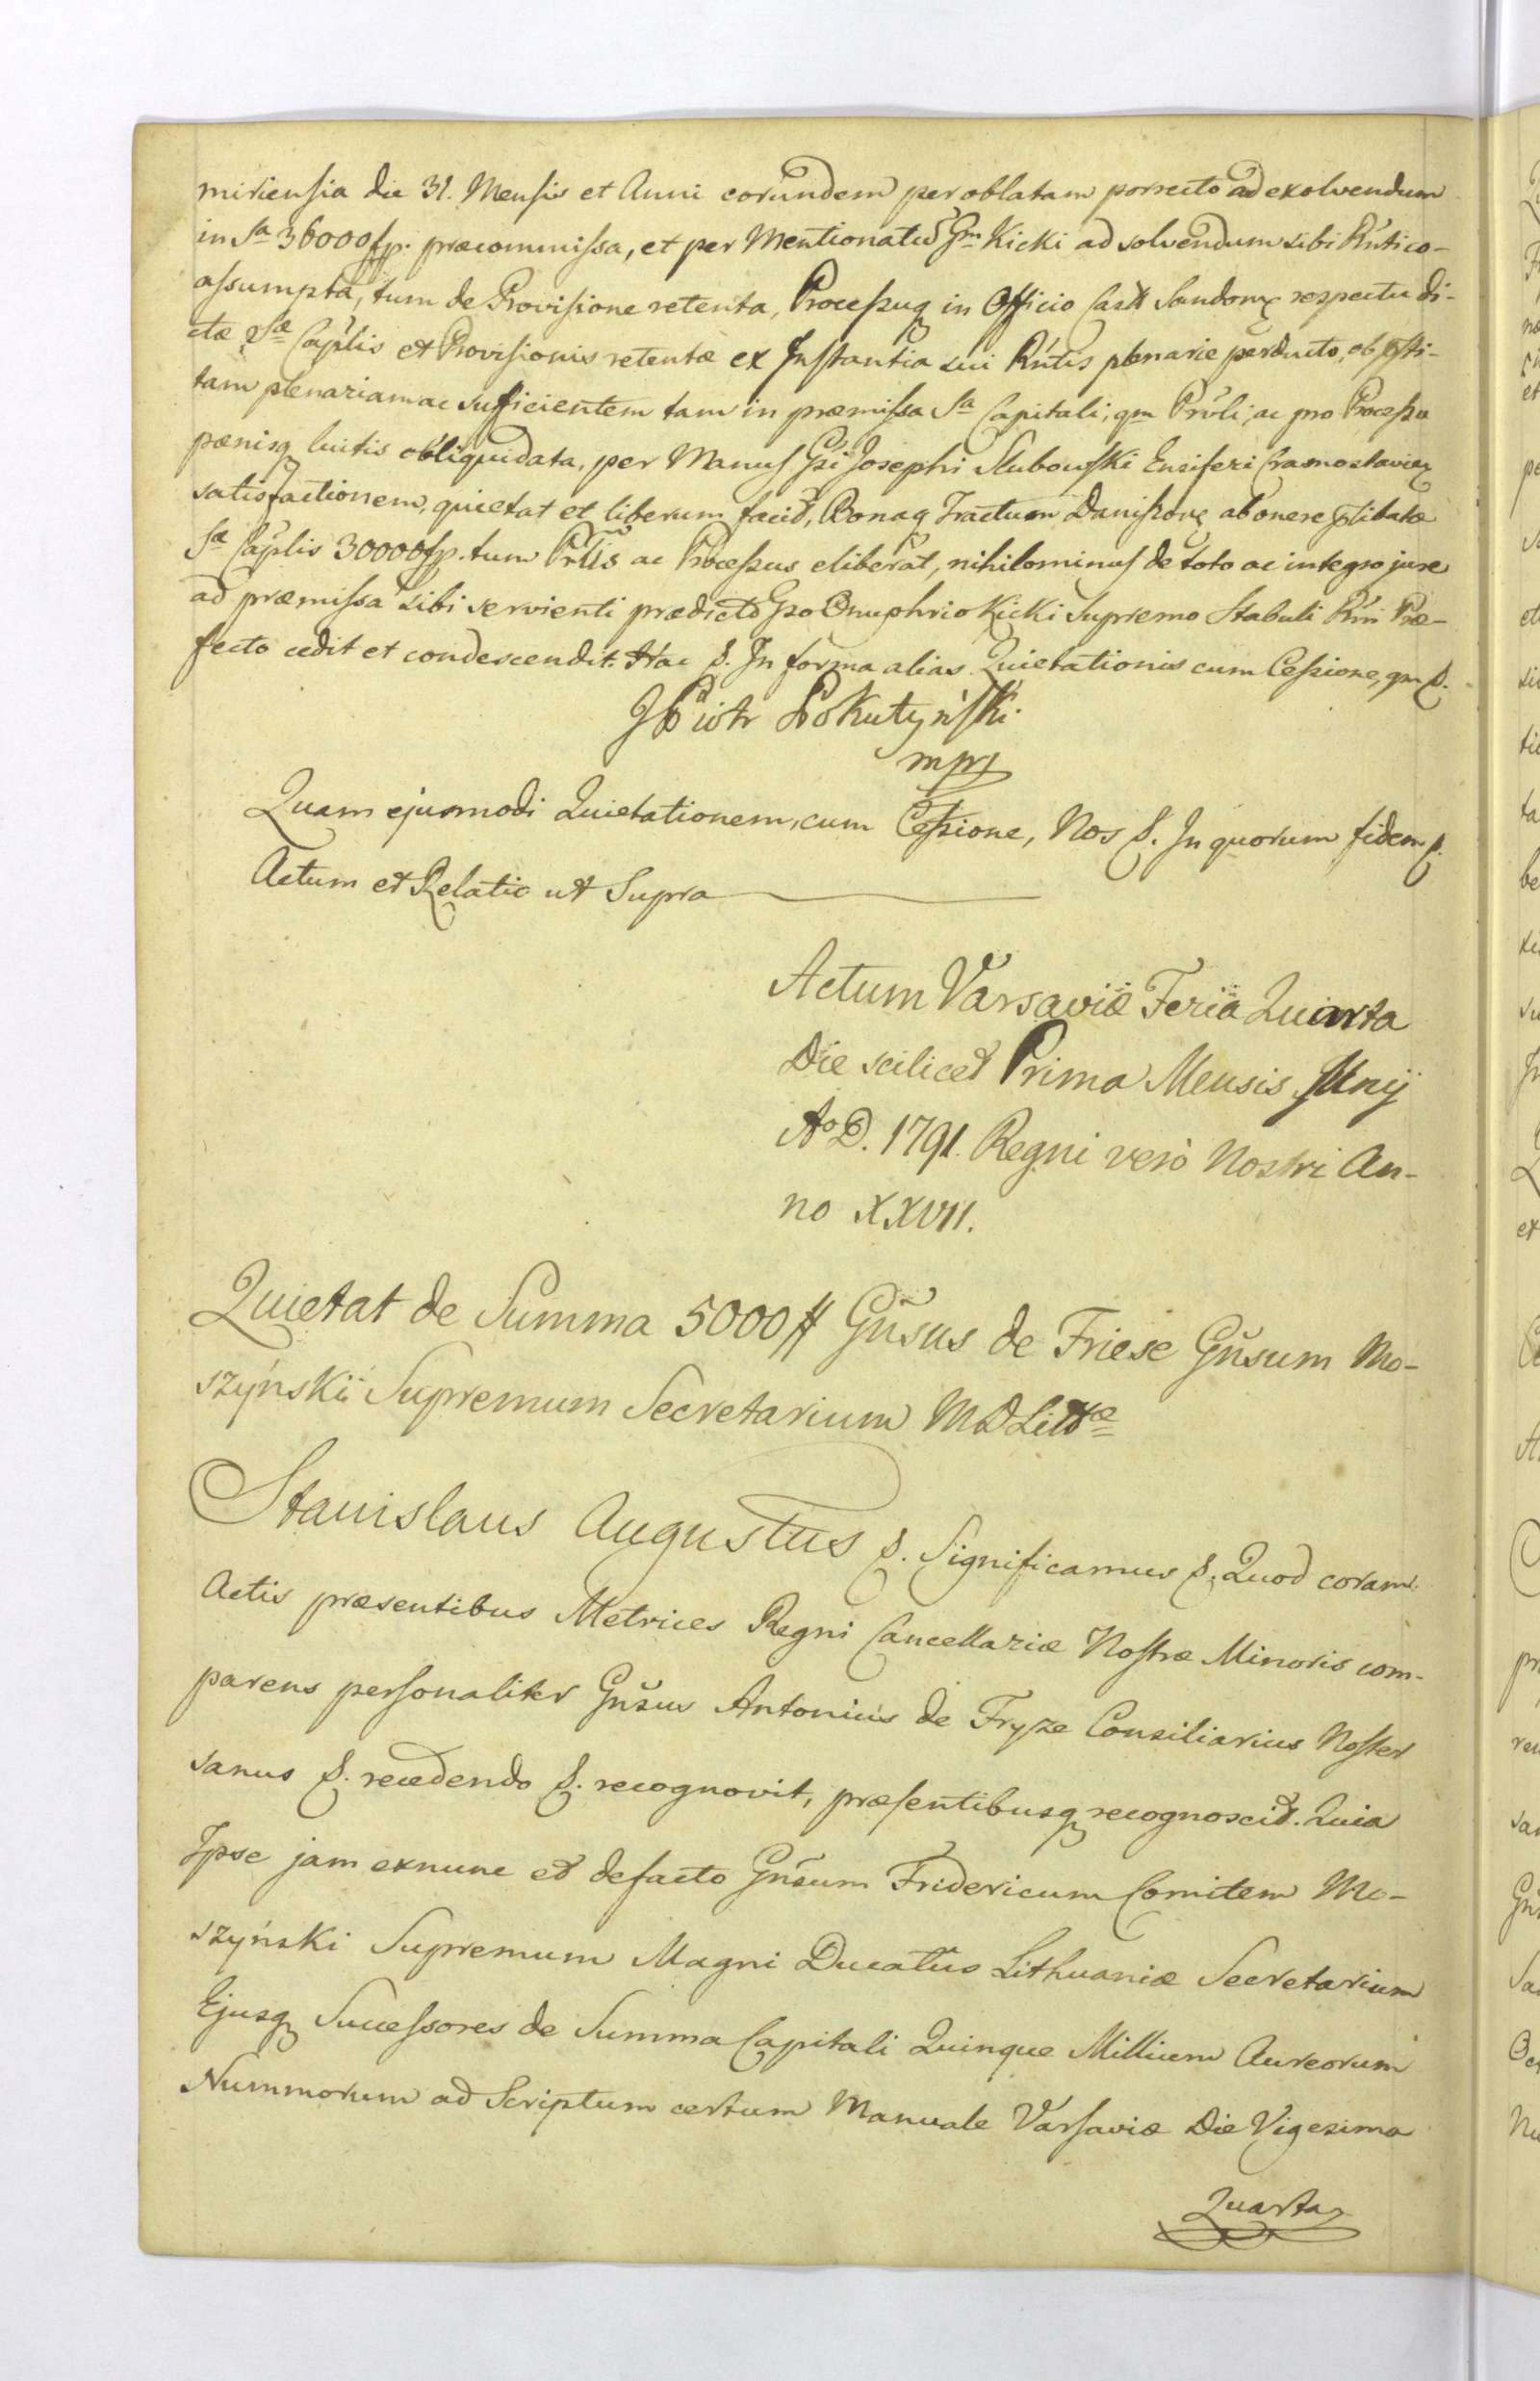 miriensia die 31. Mensis et Anni eorundem per oblatam porrecto ad exolvendum
in Sa 36000 fp. præcommissa, et per Mentionatum Gm Kicki ad solvendum sibi Rntico-
assumpta, tum de Provisione retenta, Processuq in Officio Castr Sandomi respectu di-
ctæ Sæ Caplis et Provisionis retentæ ex Instantia sui Rntis plenarie perducto, ob
tam plenariam ac sufficientem tam in præmissa Sa Capitali, qm Prvli, ac pro Processu
pænisq luitis obliquidata, per Manus Gsi Josephi Slubowski Ensiferi Crasnostavien
satisfactionem, quietat et liberum facit, Bonaq Tractum Daniszow ab onere plibatæ
Sæ Caplis 30000 fp. tum Prlis ac Processus eliberat, nihilominus de toto ac integro jure
ad præmissa sibi servienti prædicto Gso Onuphrio Kicki Supremo Stabuli Rni Præ-
fecto cedit et condescendit. Hac &. In forma alias Quietationis cum Cessione, qm &.
J Piotr Pokutyński.
mpr
Quam ejusmodi Quietationem, cum Cessione, Nos &. In quorum fidem &.
Actum et Relatio ut Supra
Actum Varsaviæ Feria Quarta
Die scilicet Prima Mensis Junij
Ao D. 1791. Regni verò Nostri An-
no XXVII.
Quietat de Summa 5000 # Gnsus de Friese Gnsum Mo-
szyński Supremum Secretarium MDLittæ
Stanislaus Augustus &. Significamus &. Quod coram
Actis præsentibus Metrices Regni Cancellariæ Nostræ Minoris com-
parens personaliter Gnsus Antonius de Fryze Consiliarius Noster
sanus &. recedendo &. recognovit, præsentibusq recognoscit. Quia
Ipse jam exnunc et defacto Gnsum Fridericum Comitem Mo-
szyński Supremum Magni Ducatus Lithuaniæ Secretarium
Ejusq Successores de Summa Capitali Quinque Millium Aureorum
Nummorum ad Scriptum certum Manuale Varsaviæ Die Vigesima
Quarta